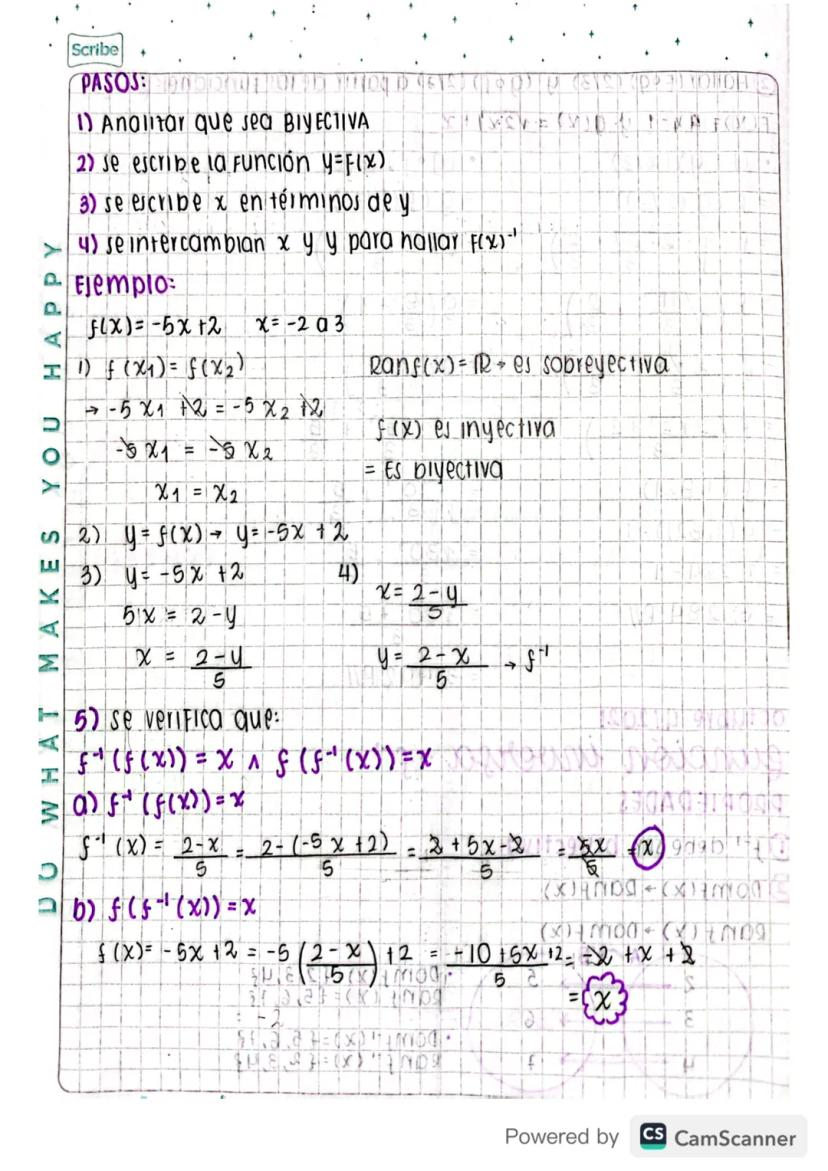 Scribe
PASOS:
1) Analizar que sea BIYECTIVA
2) se escribe la función y=f(x)
3) se escribe x en términos de y
4) se intercambian x y y para hallar f(x)⁻¹
Ejemplo:
f(x)=-5x+2 x=-2 a 3
1) f(x₁)=f(x₂)
→ -5x₁+2=-5x₂+2
-5x₁ = -5x₂
x₁ = x₂
Ranf(x)=ℝ → es sobreyectiva
f(x) es inyectiva
= Es biyectiva
2) y=f(x) → y=-5x+2
3) y=-5x+2
5x = 2-y
x = 2-y/5
4)
x = 2-y/5
y = 2-x/5 → f⁻¹
5) se verifica que:
f⁻¹(f(x))=x ∧ f(f⁻¹(x))=x
a) f⁻¹(f(x))=x
f⁻¹(x) = 2-x/5 = 2-(-5x+2)/5 = 2+5x-2/5 = 5x/5 = x
b) f(f⁻¹(x))=x
f(x)= -5x+2 = -5(2-x/5)+2 = -10+5x/5 +2 = -2+x+2
= x
DO WHAT MAKES YOU HAPPY
Powered by CS CamScanner